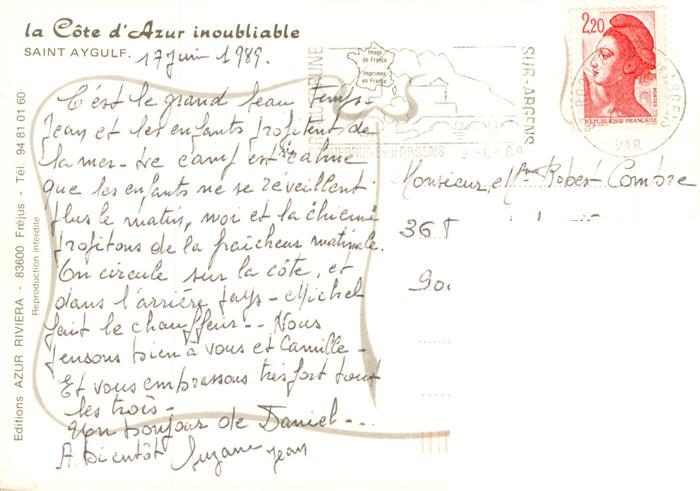 la Côte d'Azur inoubliable
SAINT AYGULF. 17 juin 1989.
C'est le grand beau temps -
Jean et les enfants profitent de
la mer - Le camp est si calme
que les enfants ne se réveillent
plus le matin, moi et la chienne
profitons de la fraîcheur matinale.
On circule sur la côte, et
dans l'arrière pays - Michel
fait le chauffeur -- Nous
pensons bien à vous et Camille -
Et vous embrassons très fort tout
les trois -
Un bonjour de Daniel - - -
A bientôt Suzanne Jean
Editions AZUR RIVIERA - 83600 Fréjus - Tél. 94 81 01 60
Reproduction interdite
Image
de France
Imprimée
en France
SUR-ARGENS
2,20
POSTES
REPUBLIQUE FRANÇAISE
VAR
Monsieur et Mme Robert Combre
36